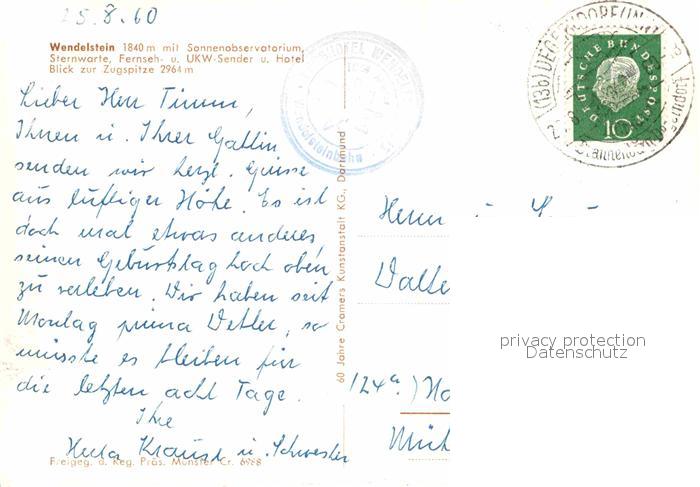 25.8.60
Wendelstein 1840 m mit Sonnenobservatorium,
Sternwarte, Fernseh- u. UKW-Sender u. Hotel
Blick zur Zugspitze 2964 m
Lieber Herr Timm,
Ihnen u. Ihrer Gattin
senden wir herzl. Grüsse
aus luftiger Höhe. Es ist
doch mal etwas anderes,
seinen Geburtstag hoch oben
zu verleben. Wir haben seit
Montag prima Wetter, so
müsste es bleiben für
die letzten acht Tage.
Ihre
Herta Krause u. Schwester
Freigeg. d. Reg. Präs. Münster Cr. 6988
60 Jahre Cramers Kunstanstalt KG., Dortmund
Wendelsteinbahn
DEUTSCHE BUNDESPOST
10
(13b) DEGERNDORF (INN)
Herrn
Walte
(24a)
privacy protection
Datenschutz